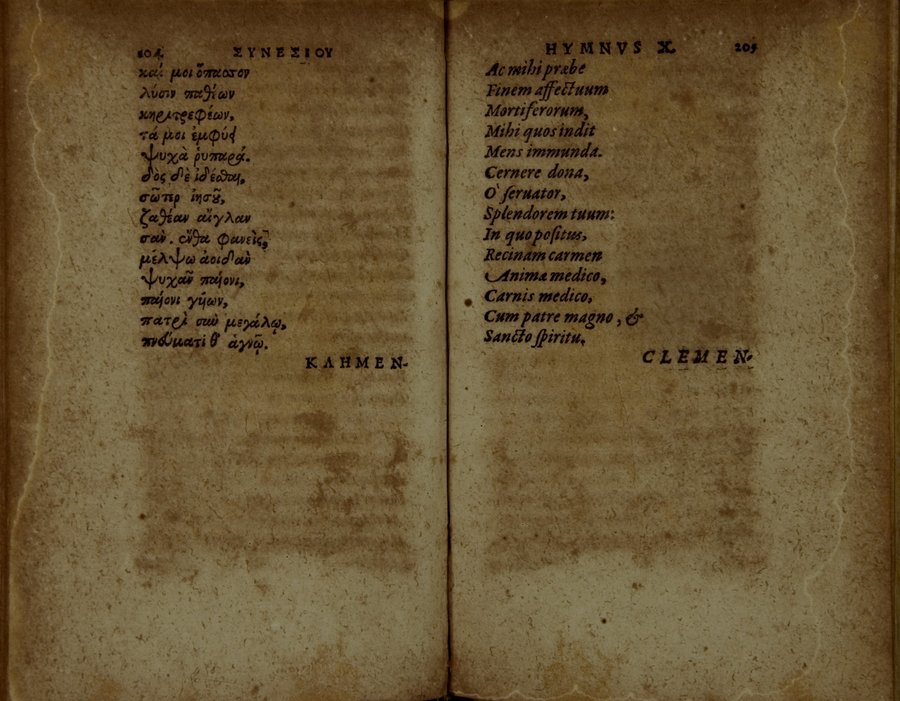 204. ΣΥΝΕΣΙΟΥ
καί μοι ὄπασον
λύσιν παθέων
κηριτρεφέων,
τά μοι ἐμφύει
ψυχὰ ῥυπαρά.
δὸς δὲ ἰδέσθαι,
σῶτερ ἰησοῦ,
ζαθέαν αἴγλαν
σὰν. ἔνθα φανεὶς,
μέλψω ἀοιδὰν
ψυχᾶν παίονι,
παίονι γυίων,
πατρὶ σὺν μεγάλῳ,
πνεύματί θ' ἁγνῷ.
ΚΛΗΜΕΝ-
HYMNVS X. 205
Ac mihi præbe
Finem affectuum
Mortiferorum,
Mihi quos indit
Mens immunda.
Cernere dona,
O' seruator,
Splendorem tuum:
In quo positus,
Recinam carmen
Animæ medico,
Carnis medico,
Cum patre magno, &
Sancto spiritu.
CLEMEN-